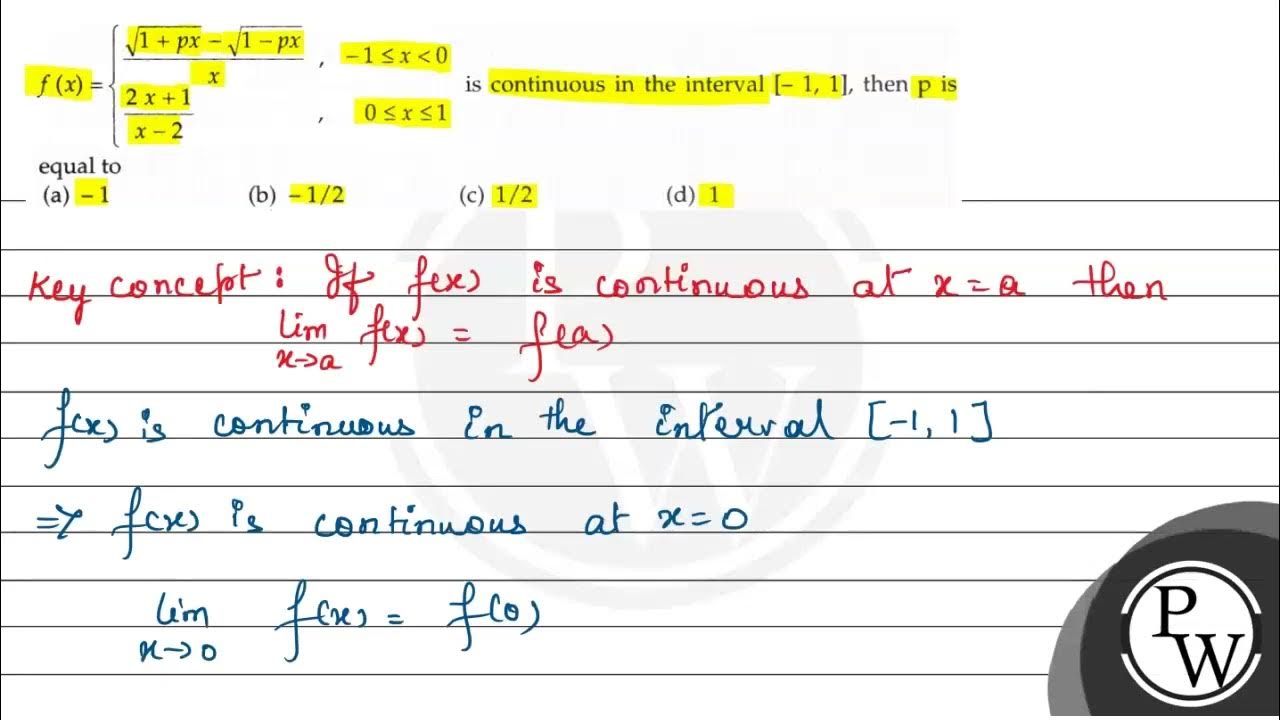 f (x) = { (√(1 + px) − √(1 − px)) / x , − 1 ≤ x < 0
(2 x + 1) / (x − 2) , 0 ≤ x ≤ 1 is continuous in the interval [− 1, 1], then p is
equal to
(a) − 1 (b) − 1/2 (c) 1/2 (d) 1
Key concept: If f(x) is continuous at x = a then
lim x→a f(x) = f(a)
f(x) is continuous in the interval [-1, 1]
⇒ f(x) is continuous at x = 0
lim x→0 f(x) = f(0)
P
W
PW